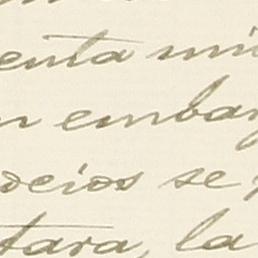 enta mi
n embar
ocios se
tara, la